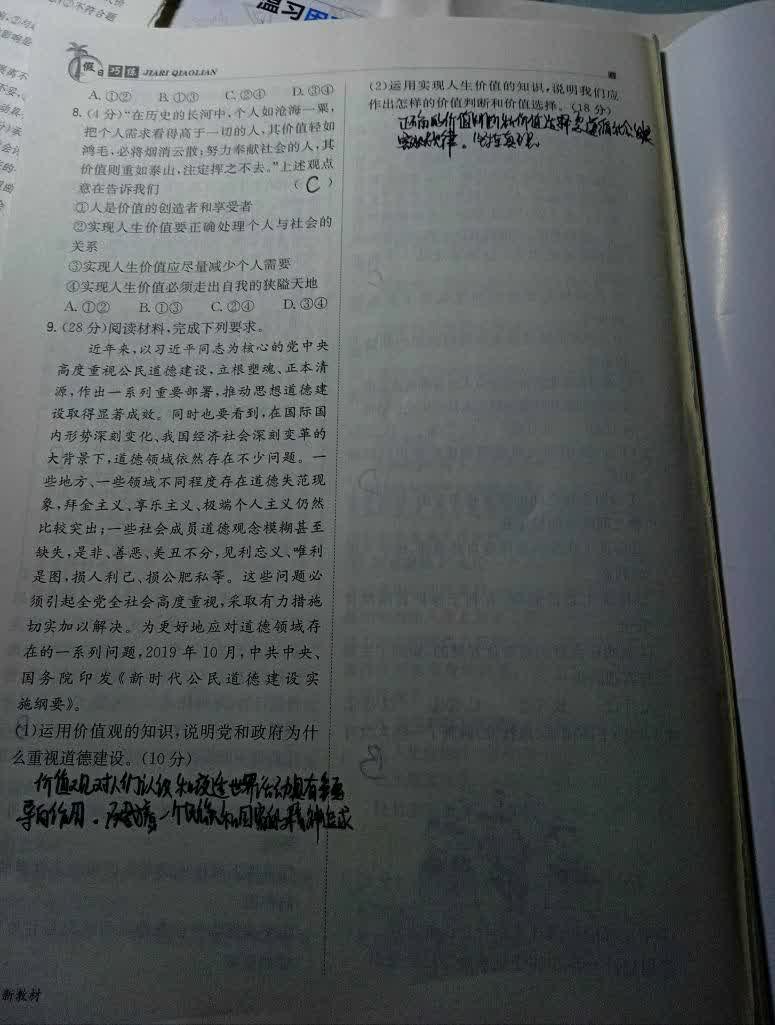 温习
②不符合题
假日巧练 JIARI QIAOLIAN
A. ①② B. ①③ C. ②④ D. ③④
8. (4分)“在历史的长河中,个人如沧海一粟,
把个人需求看得高于一切的人,其价值轻如
鸿毛,必将烟消云散;努力奉献社会的人,其
价值则重如泰山,注定挥之不去。”上述观点
意在告诉我们 ( C )
①人是价值的创造者和享受者
②实现人生价值要正确处理个人与社会的
关系
③实现人生价值应尽量减少个人需要
④实现人生价值必须走出自我的狭隘天地
A. ①② B. ①③ C. ②④ D. ③④
9. (28分)阅读材料,完成下列要求。
近年来,以习近平同志为核心的党中央
高度重视公民道德建设,立根塑魂、正本清
源,作出一系列重要部署,推动思想道德建
设取得显著成效。同时也要看到,在国际国
内形势深刻变化、我国经济社会深刻变革的
大背景下,道德领域依然存在不少问题。一
些地方、一些领域不同程度存在道德失范现
象,拜金主义、享乐主义、极端个人主义仍然
比较突出;一些社会成员道德观念模糊甚至
缺失,是非、善恶、美丑不分,见利忘义、唯利
是图,损人利己、损公肥私等。这些问题必
须引起全党全社会高度重视,采取有力措施
切实加以解决。为更好地应对道德领域存
在的一系列问题,2019年10月,中共中央、
国务院印发《新时代公民道德建设实
施纲要》。
(1)运用价值观的知识,说明党和政府为什
么重视道德建设。(10分)
价值观对人们认识和改造世界活动具有重要
导向作用。一个民族和国家的精神追求
(2)运用实现人生价值的知识,说明我们应
作出怎样的价值判断和价值选择。(18分)
正确的价值判断和价值选择 遵循社会发展
客观规律。坚持真理
新教材